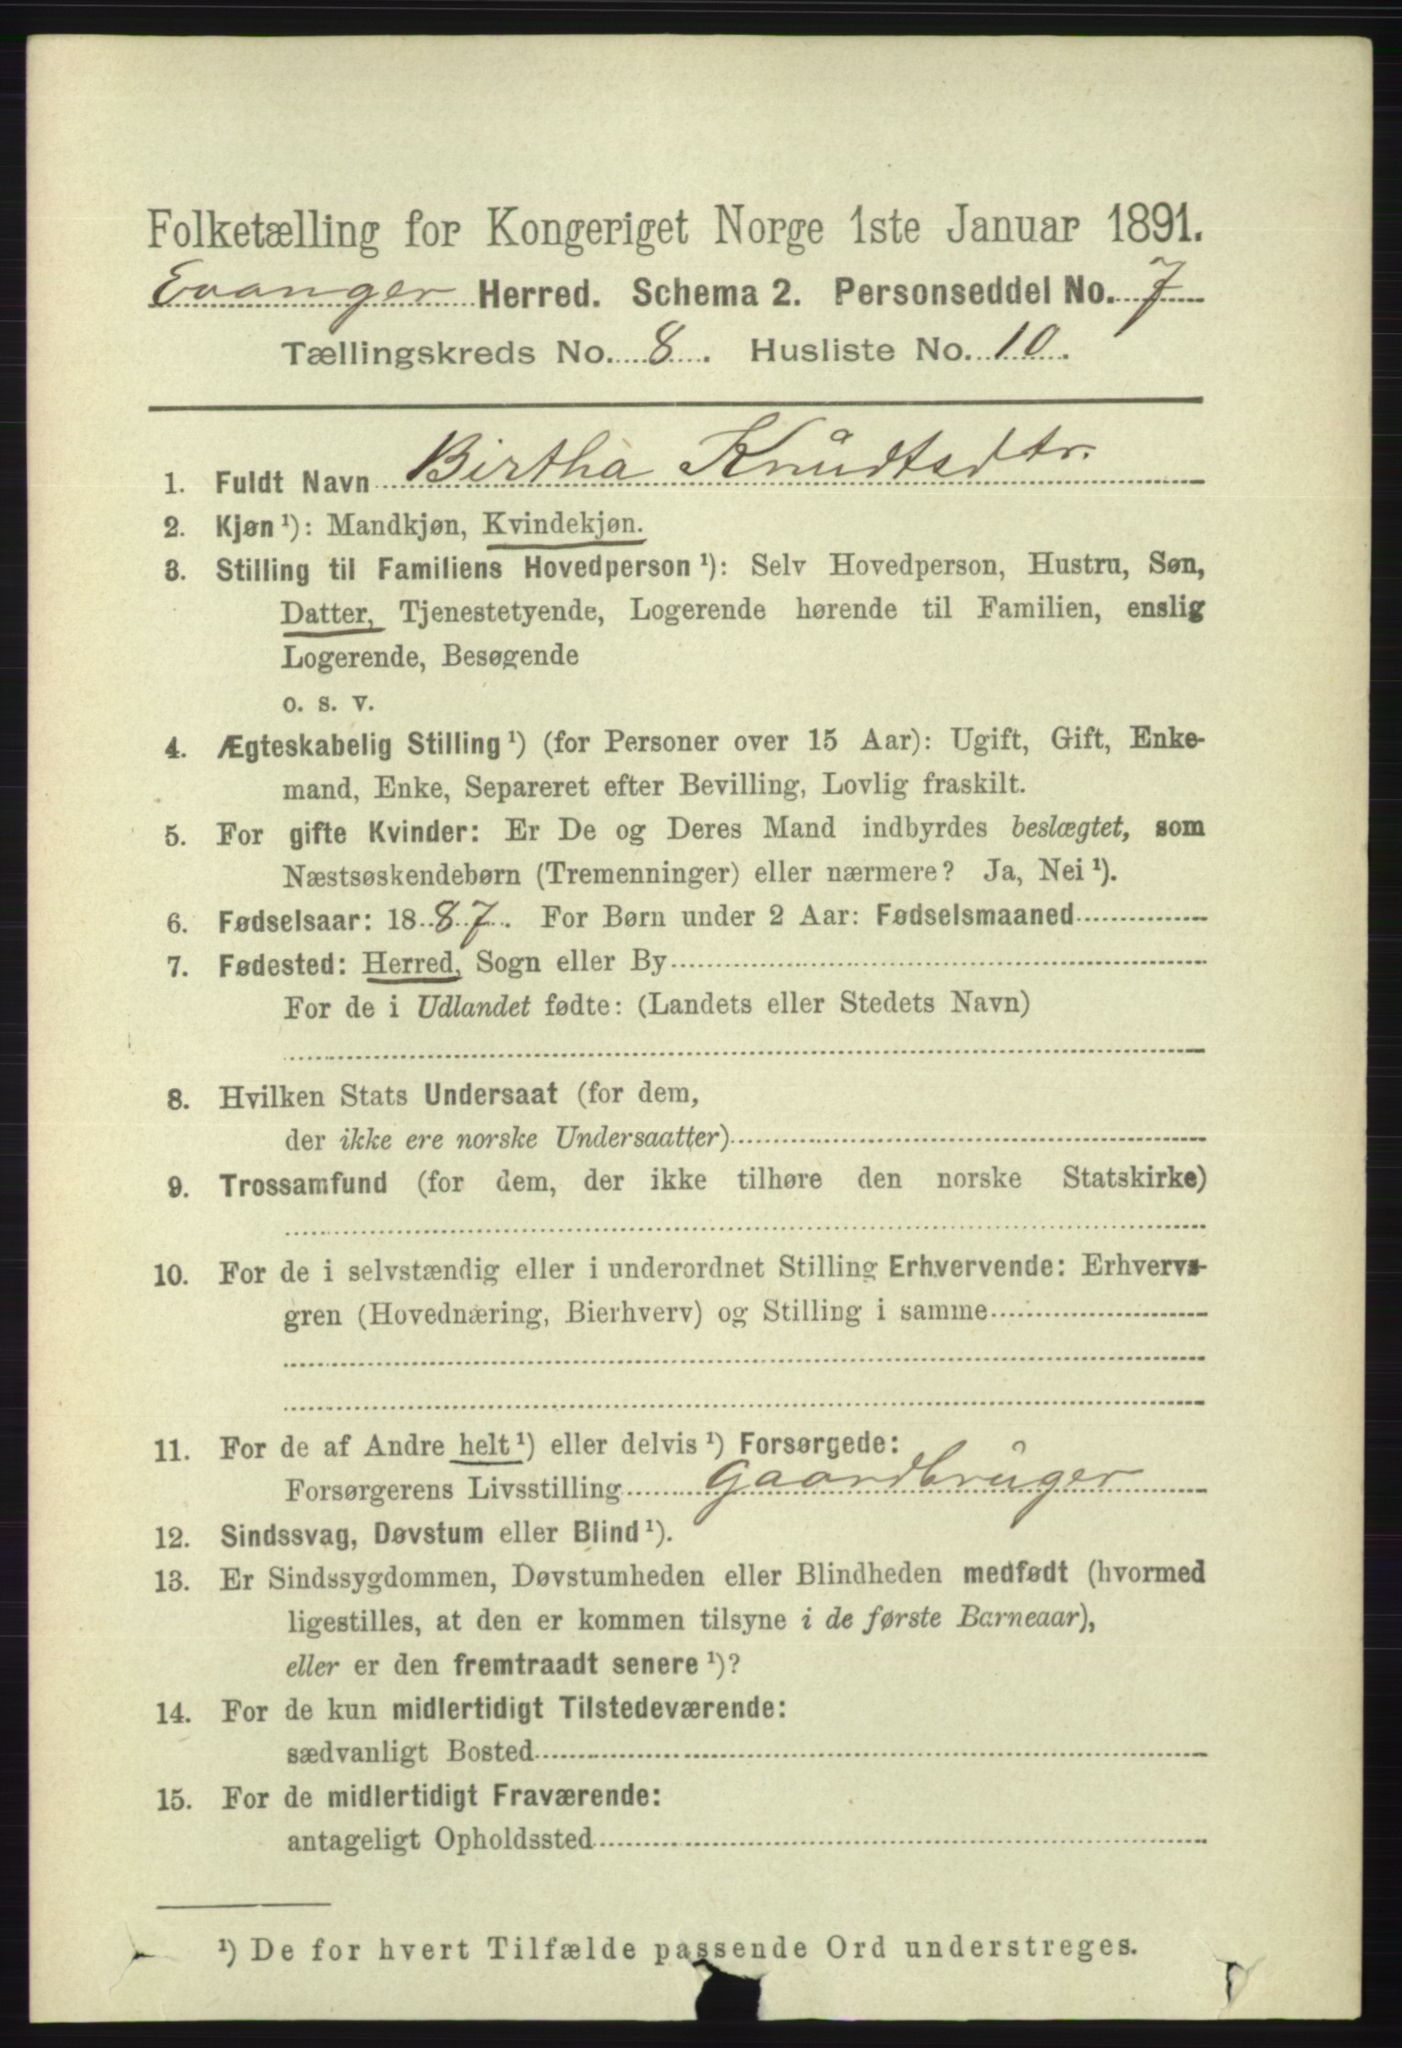 Folketælling for Kongeriget Norge 1ste Januar 1891.
Evanger Herred. Schema 2. Personseddel No. 7
Tællingskreds No. 8. Husliste No. 10.
1. Fuldt Navn Birtha Knudtsdtr.
2. Kjøn ¹): Mandkjøn, Kvindekjøn.
3. Stilling til Familiens Hovedperson ¹): Selv Hovedperson, Hustru, Søn,
Datter, Tjenestetyende, Logerende hørende til Familien, enslig
Logerende, Besøgende
o. s. v.
4. Ægteskabelig Stilling ¹) (for Personer over 15 Aar): Ugift, Gift, Enke-
mand, Enke, Separeret efter Bevilling, Lovlig fraskilt.
5. For gifte Kvinder: Er De og Deres Mand indbyrdes beslægtet, som
Næstsøskendebørn (Tremenninger) eller nærmere? Ja, Nei ¹).
6. Fødselsaar: 1887. For Børn under 2 Aar: Fødselsmaaned
7. Fødested: Herred, Sogn eller By
For de i Udlandet fødte: (Landets eller Stedets Navn)
8. Hvilken Stats Undersaat (for dem,
der ikke ere norske Undersaatter)
9. Trossamfund (for dem, der ikke tilhøre den norske Statskirke)
10. For de i selvstændig eller i underordnet Stilling Erhvervende: Erhvervs-
gren (Hovednæring, Bierhverv) og Stilling i samme
11. For de af Andre helt ¹) eller delvis ¹) Forsørgede:
Forsørgerens Livsstilling Gaardbruger
12. Sindssvag, Døvstum eller Blind ¹).
13. Er Sindssygdommen, Døvstumheden eller Blindheden medfødt (hvormed
ligestilles, at den er kommen tilsyne i de første Barneaar),
eller er den fremtraadt senere ¹)?
14. For de kun midlertidigt Tilstedeværende:
sædvanligt Bosted
15. For de midlertidigt Fraværende:
antageligt Opholdssted
¹) De for hvert Tilfælde passende Ord understreges.